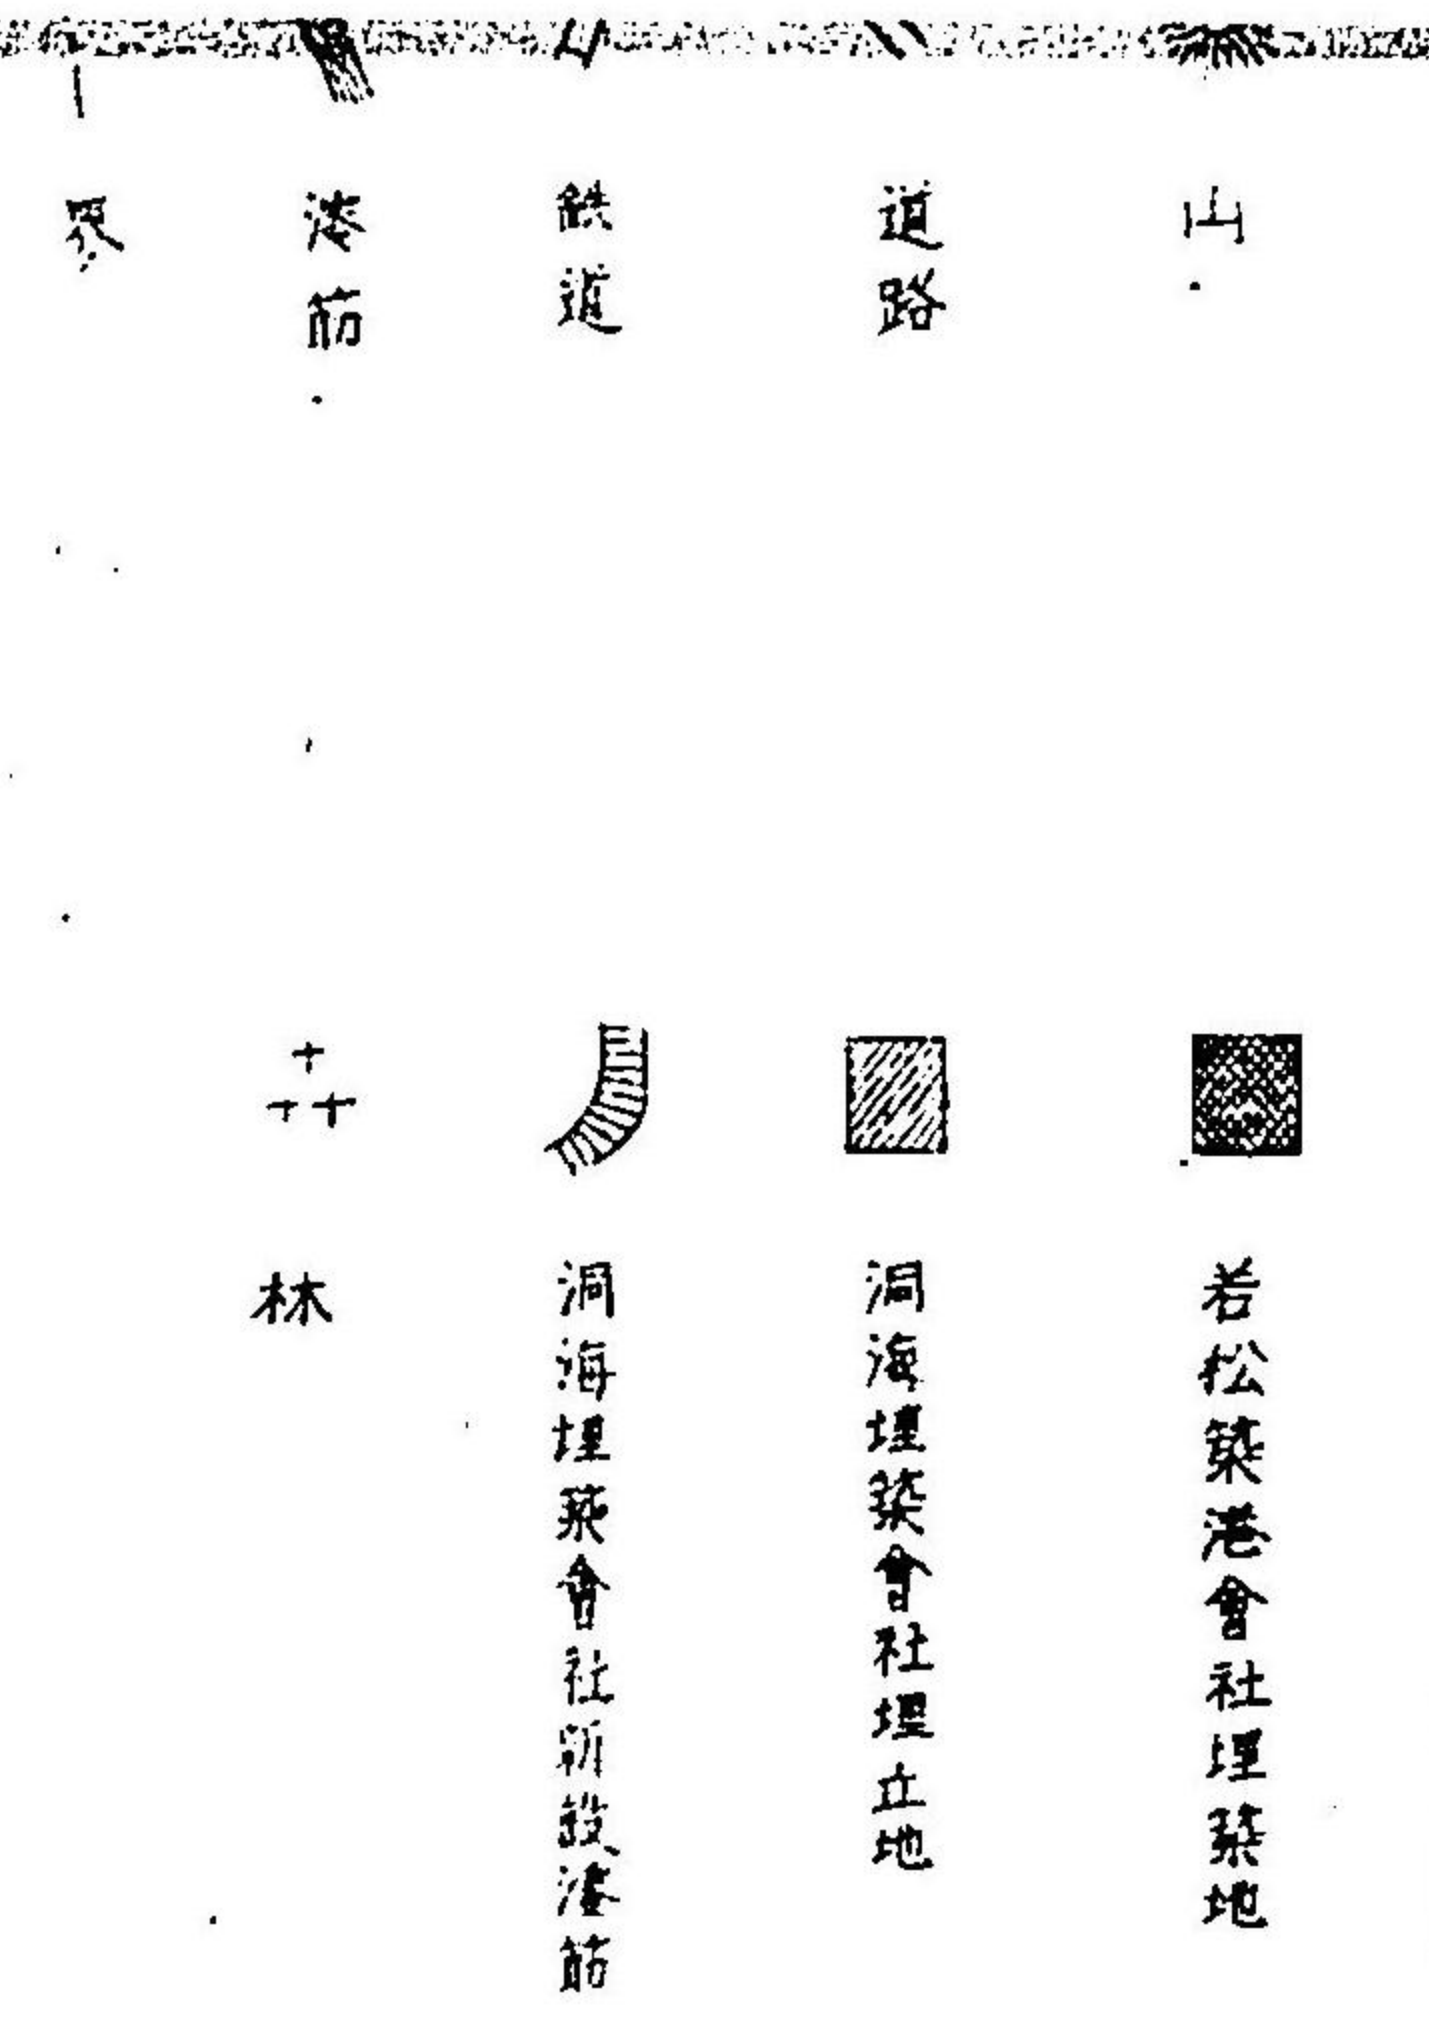 山
道路
鉄道
湊筋
界
若松築港會社埋築地
洞海埋築會社埋立地
洞海埋築會社新設湊筋
林